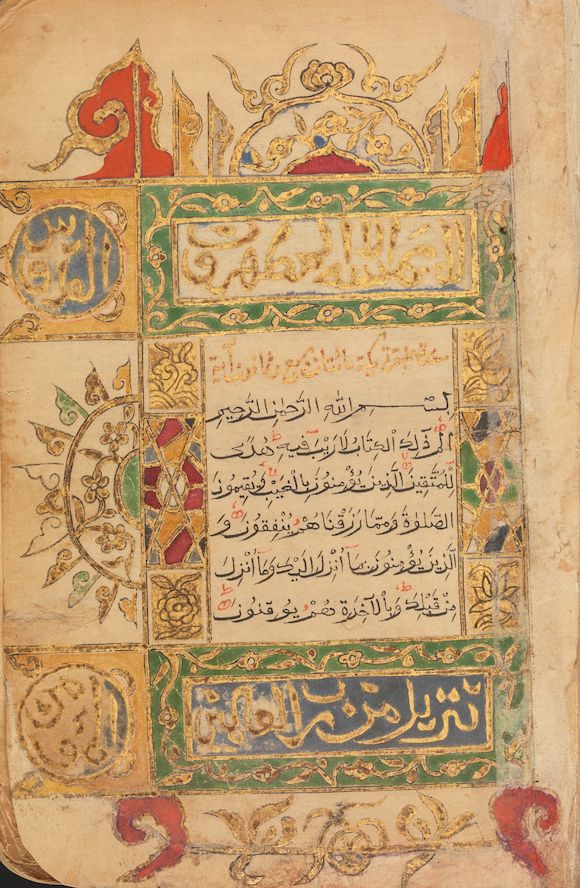 لا يمسه الا المطهرون
سورة البقرة مائتان وسبع وثمانون آية
بِسْمِ اللهِ الرَّحْمٰنِ الرَّحِيمِ
الٓمٓ ذٰلِكَ الْكِتَابُ لَا رَيْبَ فِيهِ هُدًى
لِلْمُتَّقِينَ الَّذِينَ يُؤْمِنُونَ بِالْغَيْبِ وَيُقِيمُونَ
الصَّلٰوةَ وَمِمَّا رَزَقْنَاهُمْ يُنْفِقُونَ وَ
الَّذِينَ يُؤْمِنُونَ بِمَا أُنْزِلَ إِلَيْكَ وَمَا أُنْزِلَ
مِنْ قَبْلِكَ وَبِالْآخِرَةِ هُمْ يُوقِنُونَ
تنزيل من رب العالمين